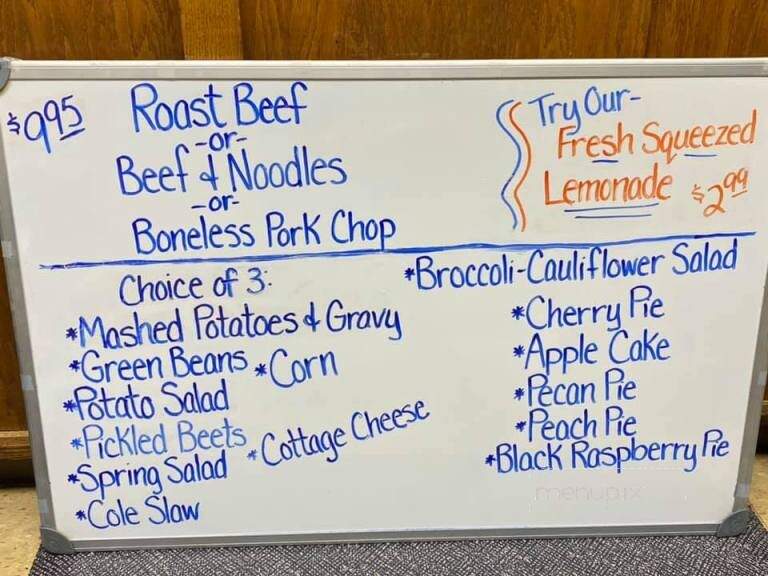 $9.95
Roast Beef
-or-
Beef & Noodles
-or-
Boneless Pork Chop
Try Our-
Fresh Squeezed
Lemonade $2.99
Choice of 3:
*Mashed Potatoes & Gravy
*Green Beans *Corn
*Potato Salad
*Pickled Beets *Cottage Cheese
*Spring Salad
*Cole Slaw
*Broccoli-Cauliflower Salad
*Cherry Pie
*Apple Cake
*Pecan Pie
*Peach Pie
*Black Raspberry Pie
menupix